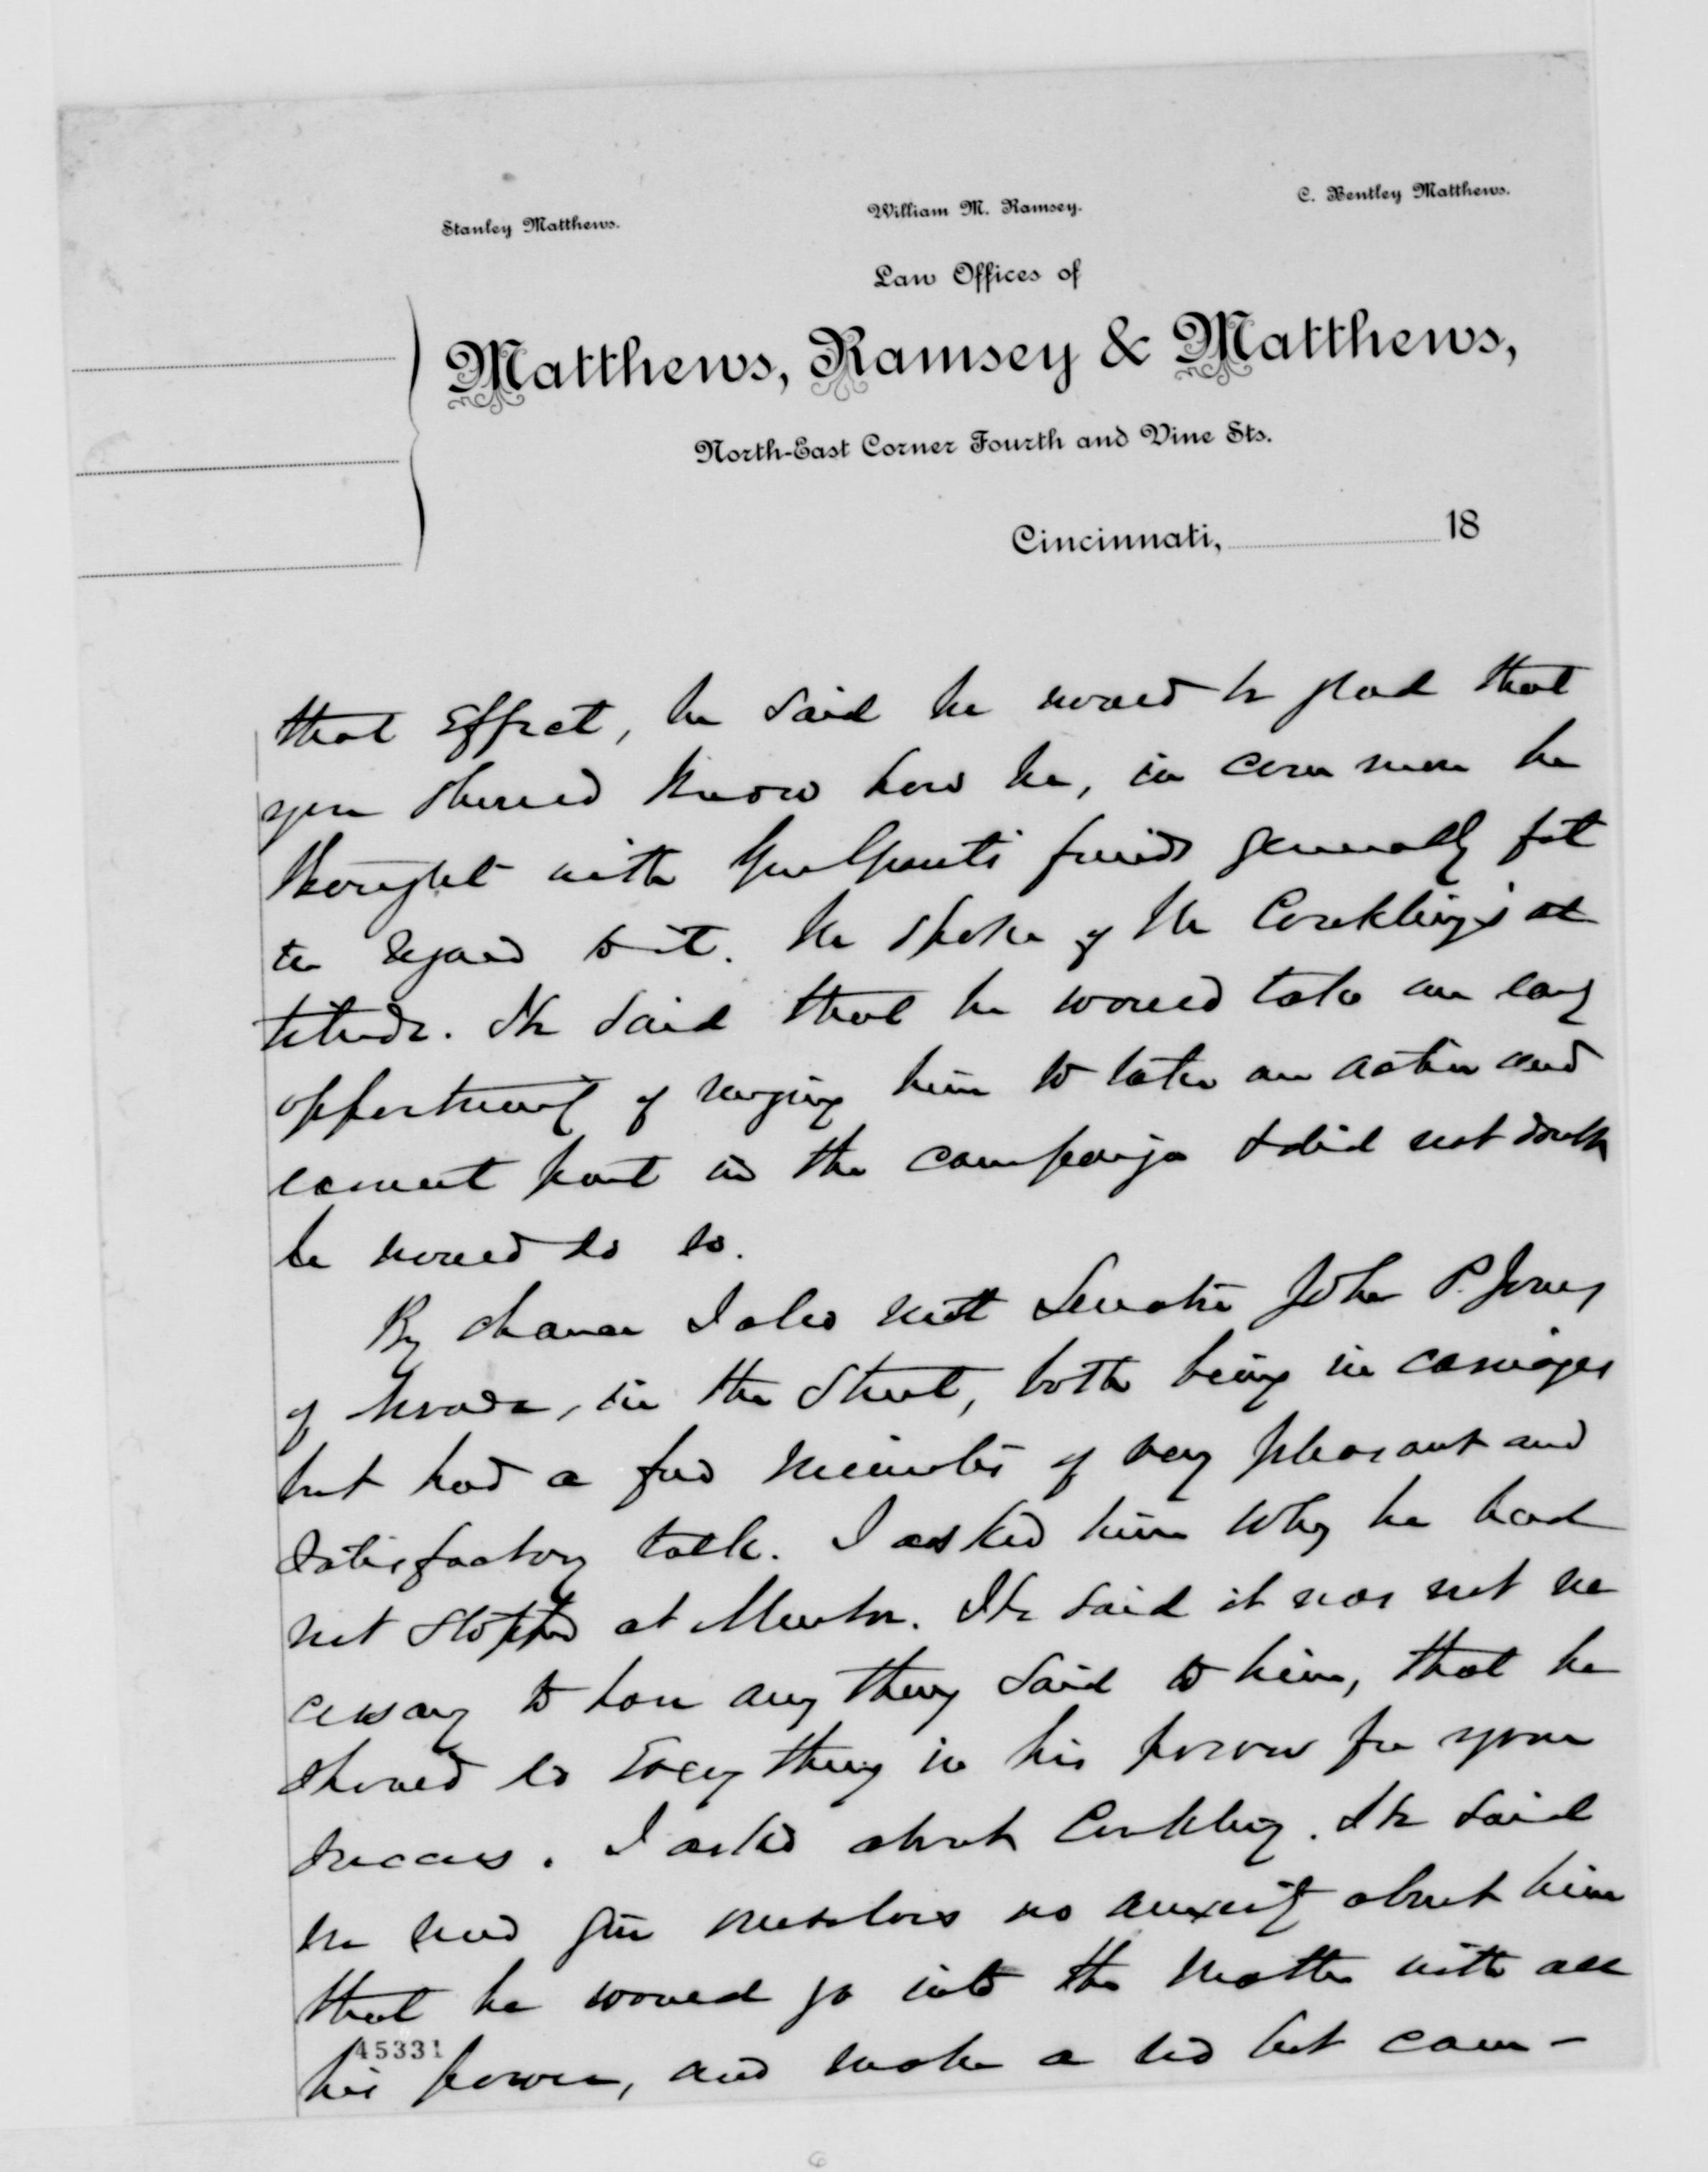 Stanley Matthews.
William M. Ramsey.
C. Bentley Matthews.
Law Offices of
Matthews, Ramsey & Matthews,
North-East Corner Fourth and Vine Sts.
Cincinnati, 18
that effect, he said he would be glad that
you should know how he, in common he
thought with Genl Grants friends generally felt
in regard to it. He spoke of Mr Conkling's at
titude. He said that he would take an early
opportunity of urging him to take an active and
earnest part in the campaign & did not doubt
he would do so.
By chance I also met Senator John P. Jones
of Nevada, in the street, both being in carriages
but had a few minutes of very pleasant and
satisfactory talk. I asked him why he had
not stopped at Mentor. He said it was not ne
cessary to have any thing said to him, that he
should do every thing in his power for your
success. I asked about Conkling. He said
we need give ourselves no anxiety about him
that he would go into the matter with all
his power, and make a red hot cam-
45331
6